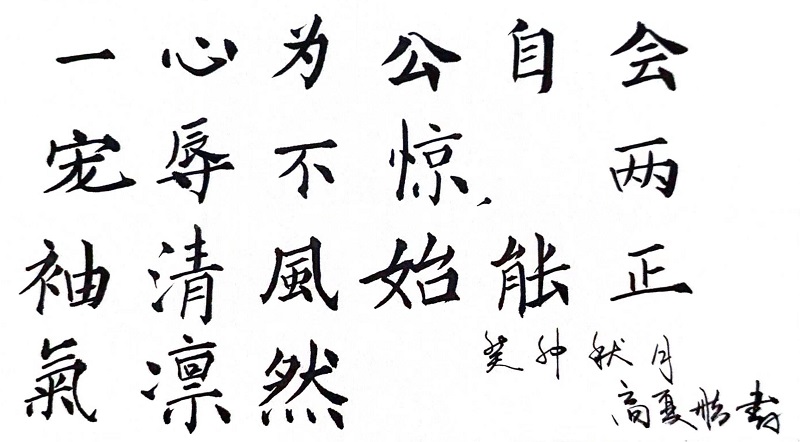 一心为公自会
宠辱不惊，两
袖清風始能正
氣凛然
癸卯秋月
高夏書